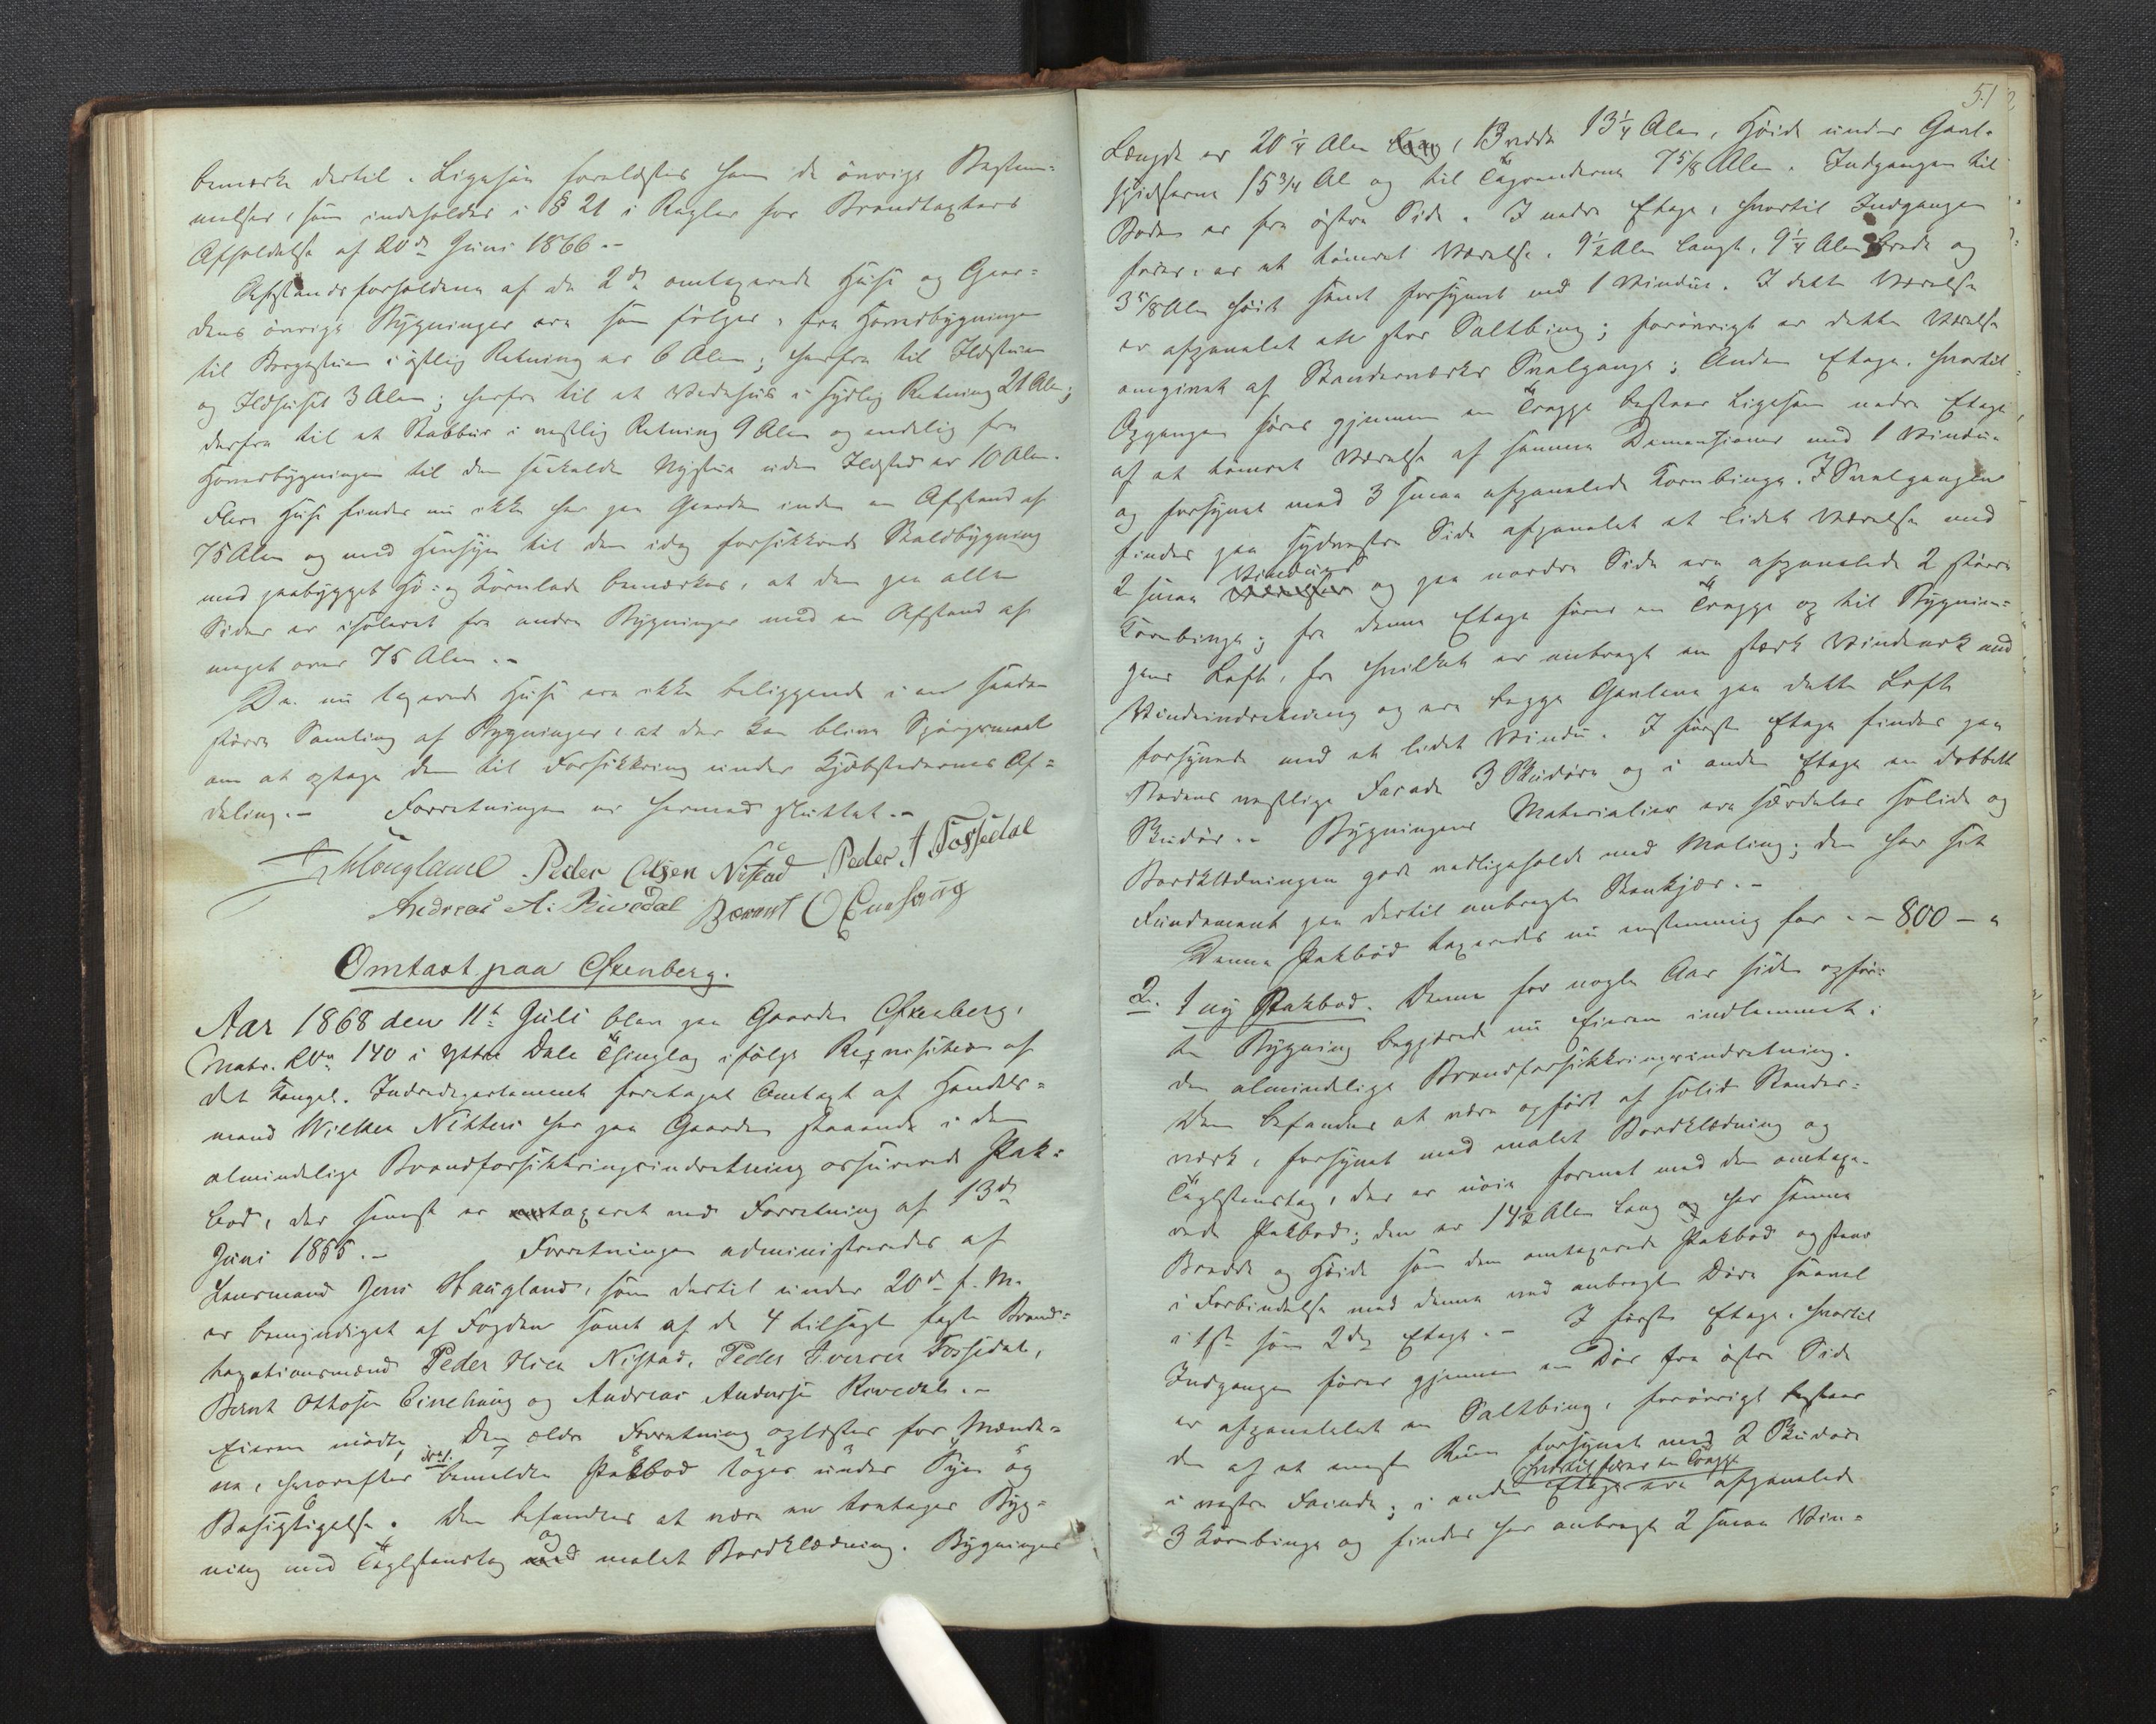 bemærke dertil. Ligesaa forelæstes ham de øvrige Bestem-
melser, som indeholdes i § 21 i Regler for Brandtaxters
Afholdelse af 20de Juni 1866.-
Afstandsforholdene af de 2de omtaxerede Huse og Gaar-
dens øvrige Bygninger ere som følger: fra Hovedbygningen
til Borgestuen i østlig Retning er 6 Alen; herfra til Ildstuen
og Ildhuset 3 Alen; herfra til et Vedehus i sydlig Retning 21 Alen;
derfra til et Stabbur i vestlig Retning 9 Alen og endelig fra
Hovedbygningen til den saakaldte Nystue uden Ildsted er 10 Alen.
Flere Huse findes nu ikke her paa Gaarden inden en Afstand af
75 Alen og med Hensyn til den idag forsikkrede Staldbygning
med paabygget Hø- og Kornlade bemærkes, at den paa alle
Sider er isoleret fra andre Bygninger med en Afstand af
meget over 75 Alen.-
De nu taxerede Huse ere ikke beliggende i en saadan
større Samling af Bygninger, at der kan blive Spørgsmaal
om at optage dem til Forsikkring under Kjøbstædernes Af-
deling.- Forretningen er hermed sluttet.-
J Hougland Peder Olsen Nistad Peder I Fossedal
Andreas A. Rivedal Bærent O Einehaug
Omtaxt paa Steenberg.
Aar 1868 den 11te Juli blev paa Gaarden Steenberg,
Matr. No 140 i Yttre Dale Thinglag ifølge Requisition af
det Kongel. Indredepartement foretaget Omtaxt af Handels-
mand Willken Nitters her paa Gaarden staaende i den
almindelige Brandforsikkringsindretning assurerede Pak-
bod, der senest er taxeret ved Forretning af 13de
Juni 1855.- Forretningen administreredes af
Lensmand Jens Haugland, som dertil under 20de f. M.
er bemyndiget af Fogden samt af de 4 tilsagte faste Brand-
taxationsmænd Peder Olsen Nistad, Peder Iversen Fossedal,
Bernt Ottosen Einehaug og Andreas Andersen Rivedal.-
Eieren mødte. Den ældre Forretning oplæstes for Mænde-
ne, hvorefter bemeldte Pakbod toges under Syn og
Besigtigelse. Den befandtes at være en toetages Byg-
ning med Taglsteenstag og malet Bordklædning. Bygningens
51
Længde er 20 1/4 Alen, Bredde 13 1/4 Alen, Høide under Gavl-
spidserne 15 3/4 Al og til Tagrenderne 7 5/8 Alen. Indgangen til
Boden er fra østre Side. I nedre Etage, hvortil Indgangen
fører, er et tømret Værelse, 9 1/2 Alen langt, 9 1/4 Alen bredt og
3 5/8 Alen høit samt forsynet med 1 Vindue. I dette Værelse
er afpanelet en stor Saltbing; forøvrigt er dette Værelse
omgivet af Standerværks Svalgange; Anden Etage, hvortil
Opgangen fører gjennem en Trappe bestaar ligesom nedre Etage
af et tømret Værelse af samme Dimensioner med 1 Vindue
og forsynet med 3 smaa afpanelede Kornbinge. I Svalgangen
findes paa sydvestre Side afpanelet et lidet Værelse med
2 smaa Vinduer og paa nordre Side ere afpanelede 2 større
Kornbinge; fra denne Etage fører en Trappe op til Bygnin-
gens Loft, fra hvilket er anbragt en stærk Vindeark med
Vindeindretning og ere begge Gavlene paa dette Loft
forsynede med et lidet Vindu. I første Etage findes paa
Bodens vestlige Facade 3 Skuddøre og i anden Etage en dobbelt
Skuddør.- Bygningens Materialier ere særdeles solide og
Bordklædningen godt vedligeholdt med Maling; den har sit
Fundament paa dertil anbragte Steenkjær.-
Denne Pakbod taxeredes nu enstemmig for - - 800 - "
2. 1 ny Pakbod. Denne for nogle Aar siden opfør-
te Bygning begjærede nu Eieren indlemmet i
den almindelige Brandforsikkringsindretning.
Den befandtes at være opført af solid Stander-
værk, forsynet med malet Bordklædning og
Taglsteenstag, der er nøie formet med den omtaxe-
rede Pakbod; den er 14 1/2 Alen lang og har samme
Bredde og Høide som den omtaxerede Pakbod og staar
i Forbindelse med denne ved anbragte Døre saavel
i 1ste som 2den Etage.- I første Etage, hvortil
Indgangen fører gjennem en Dør fra østre Side
er afpanelet en Saltbing, forøvrigt bestaar
den af et eneste Rum forsynet med 2 Skuddøre
hvortil fører en Trappe
i vestre Facade; i anden Etage ere afpanelede
3 Kornbinge og findes her anbragte 2 smaa Vin-